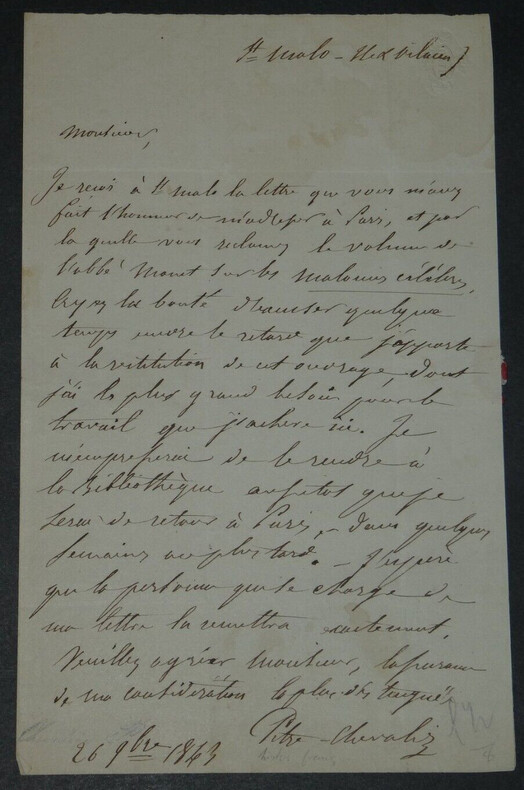 St malo - Ile & Vilaine
Monsieur,
Je reçois à St malo la lettre que vous m'avez
fait l'honneur de m'adresser à Paris, et par
la quelle vous reclamez le volume de
l'abbé Manet sur les malouins célèbres.
Ayez la bonté d'excuser quelque
temps encore le retard que j'apporte
à la restitution de cet ouvrage, dont
j'ai le plus grand besoin pour le
travail que j'achève ici. Je
m'empresserai de le rendre à
la Bibliothèque aussitot que je
serai de retour à Paris, - dans quelques
semaines au plus tard. - J'espère
que la personne qui se charge de
ma lettre la remettra exactement.
Veuillez agréer Monsieur, l'assurance
de ma considération la plus distinguée
Pitre-Chevalier
26 9bre 1863